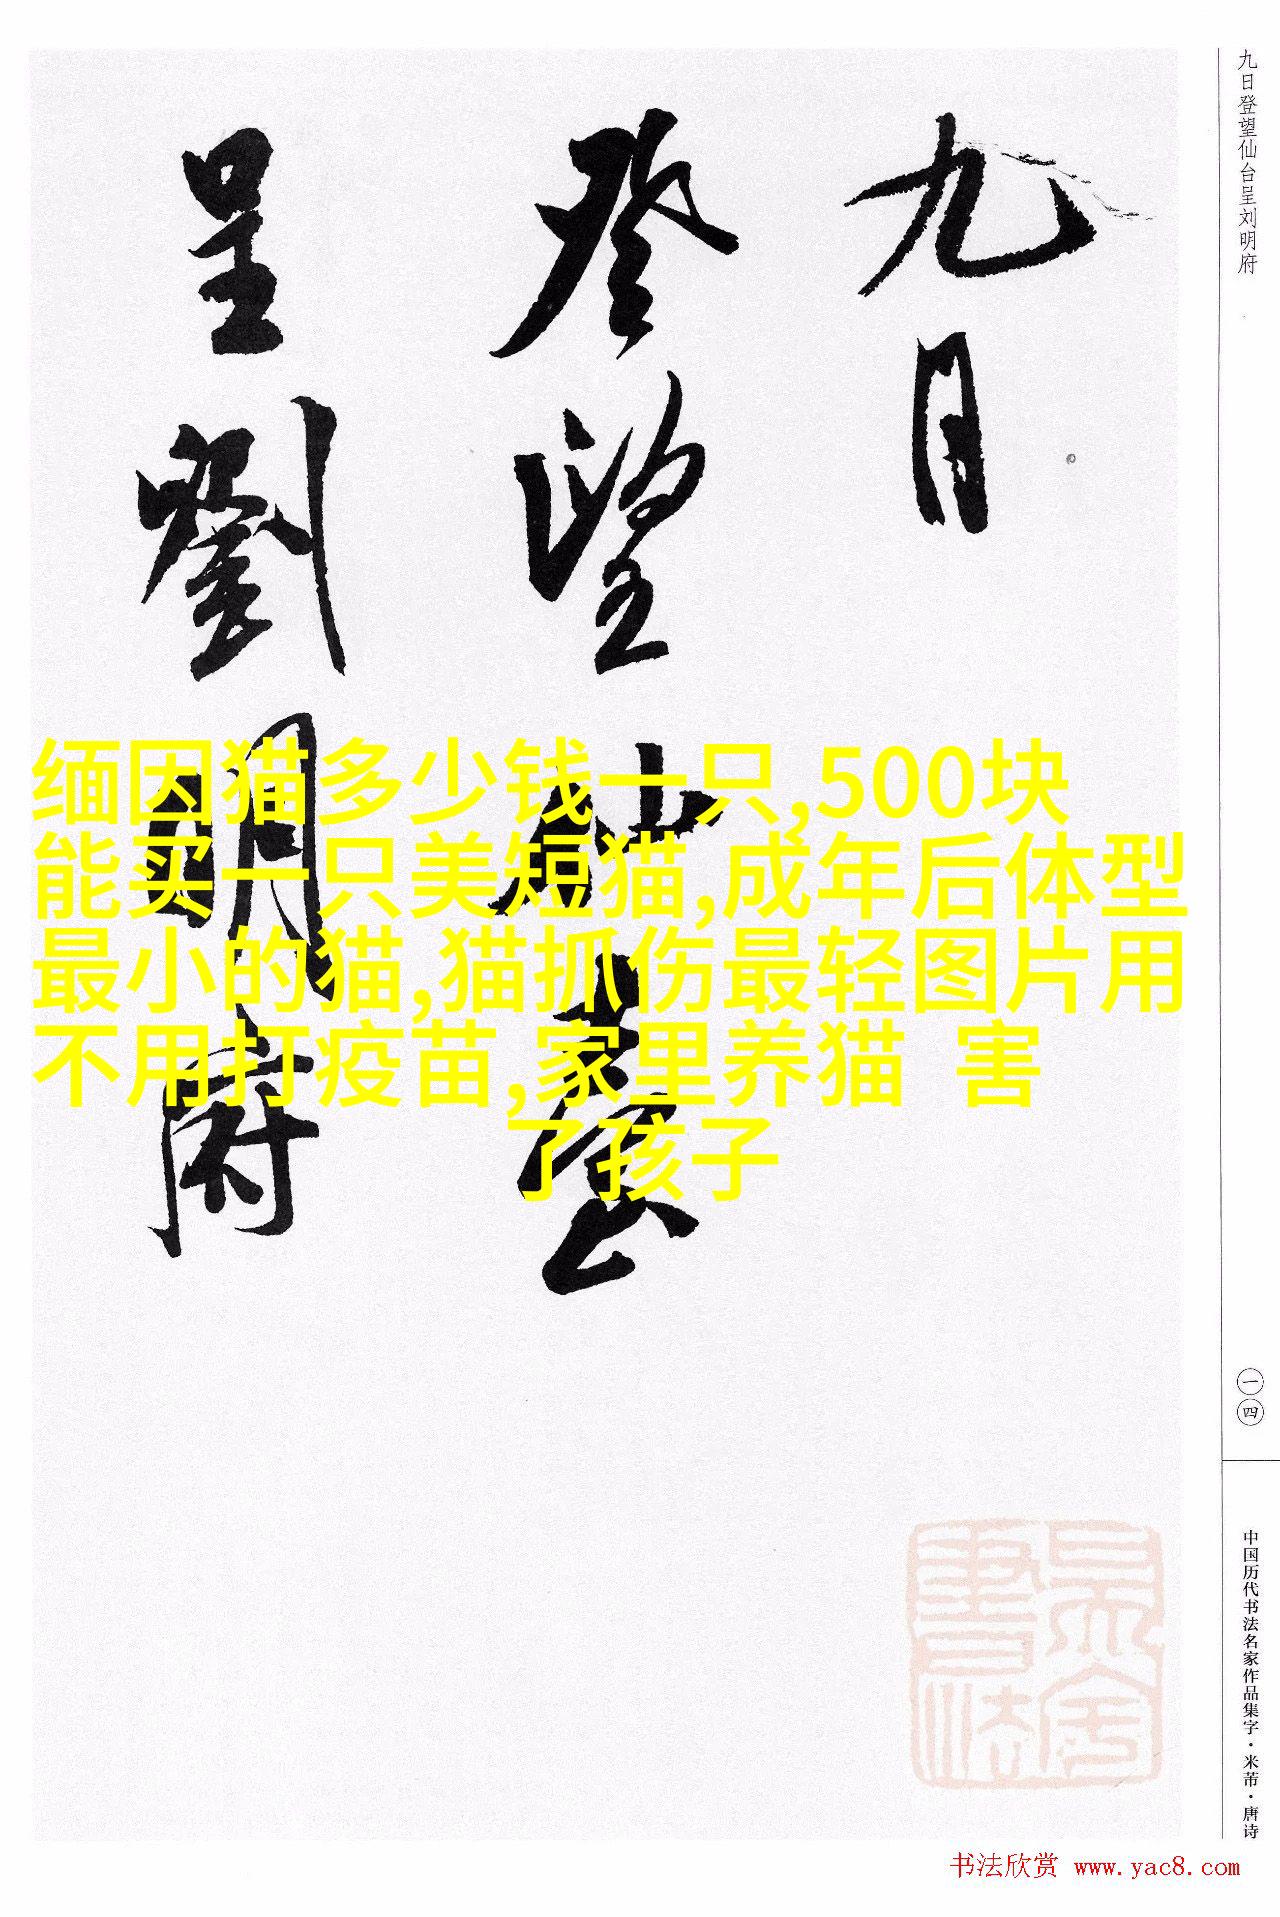 九日登望仙台呈刘明府
九日
登望仙臺
呈劉明府
缅因猫多少钱一只,500块
能买一只美短猫,成年后体型
最小的猫,猫抓伤最轻图片用
不用打疫苗,家里养猫 害
了孩子
一四
中国历代书法名家作品集字·米芾·唐诗
书法欣赏 www.yac8.com